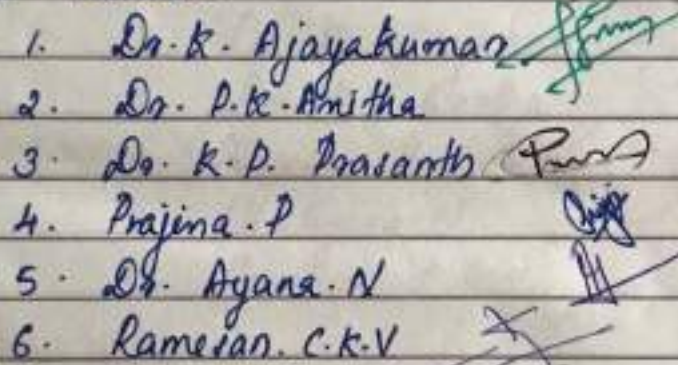 1. Dr. K. Ajayakumar
2. Dr. P.K. Anitha
3. Dr. K. P. Prasanth
4. Prajina. P
5. Dr. Ayana. N
6. Ramesan. C.K.V